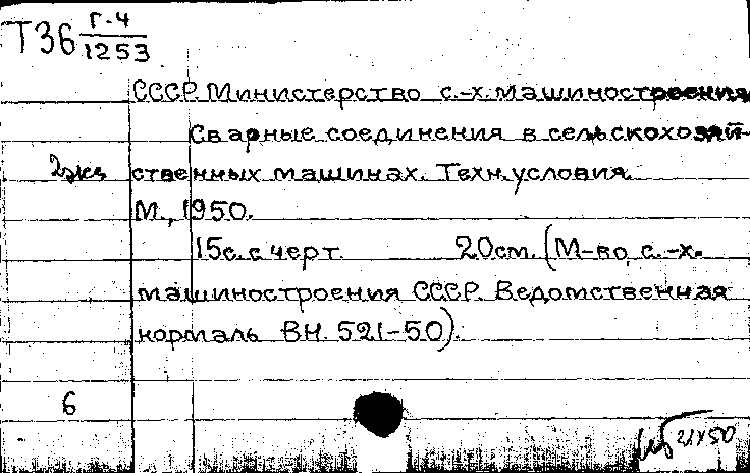 Т36 Г-4
1253
СССР. Министерство с.-х. машиностроения
Сварные соединения в сельскохозяй-
2экз ственных машинах. Техн. условия.
М., 1950.
15с. с черт. 20см. (М-во с.-х.
машиностроения СССР. Ведомственная
нормаль ВН. 521-50).
6